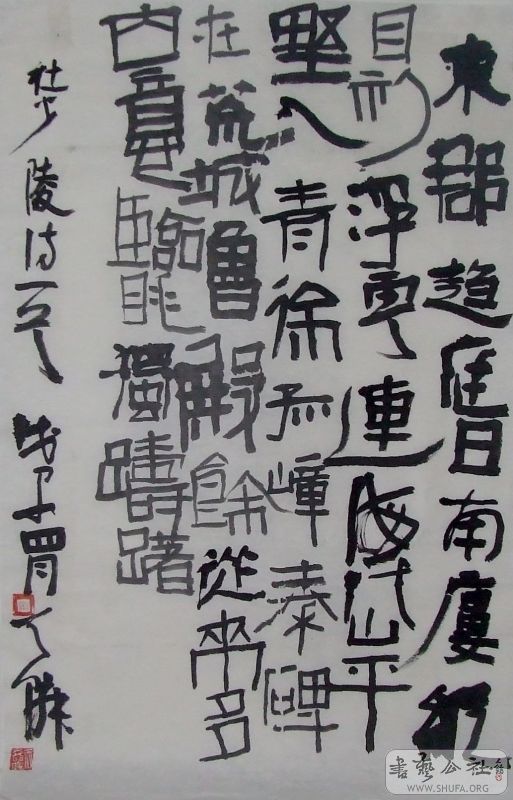 東郡趨庭日南廔縱
目初浮雲連海岱平
野入青徐孤嶂秦碑
在荒城魯殿餘從來多
古意臨眺獨躊躇
杜少陵诗一首 戊子
書藝公社
WWW.SHUFA.ORG